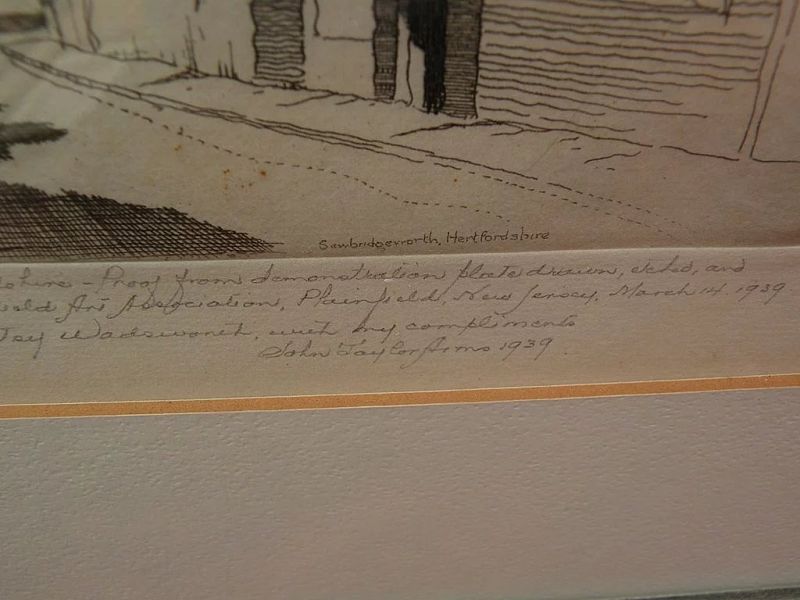 Sawbridgeworth, Hertfordshire
shire - Proof from demonstration plate drawn, etched, and
field Art Association, Plainfield, New Jersey, March 14 1939
Jay Wadsworth, with my compliments
John Taylor Arms 1939